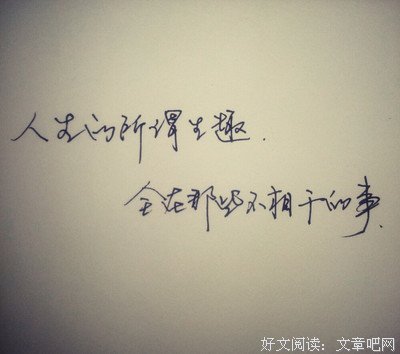 人生的所得生趣.
全在那些不相干的事.
好文阅读：文章吧网